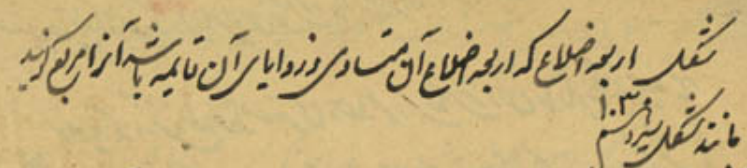 شکل اربعه اضلاع که اربعه اضلاع آن متساوی و زوایای آن قایمه باشد آنرا مربع گویند
مانند شکل